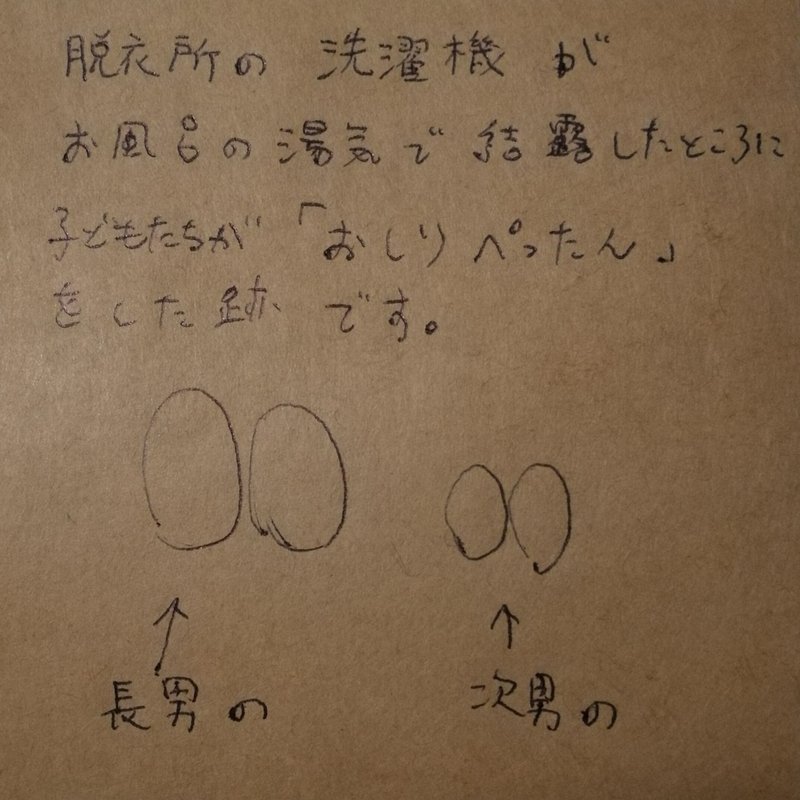 脱衣所の 洗濯機 が
お風呂の湯気で結露したところに
子どもたちが「おしりぺったん」
をした跡です。
↑ ↑
長男の 次男の